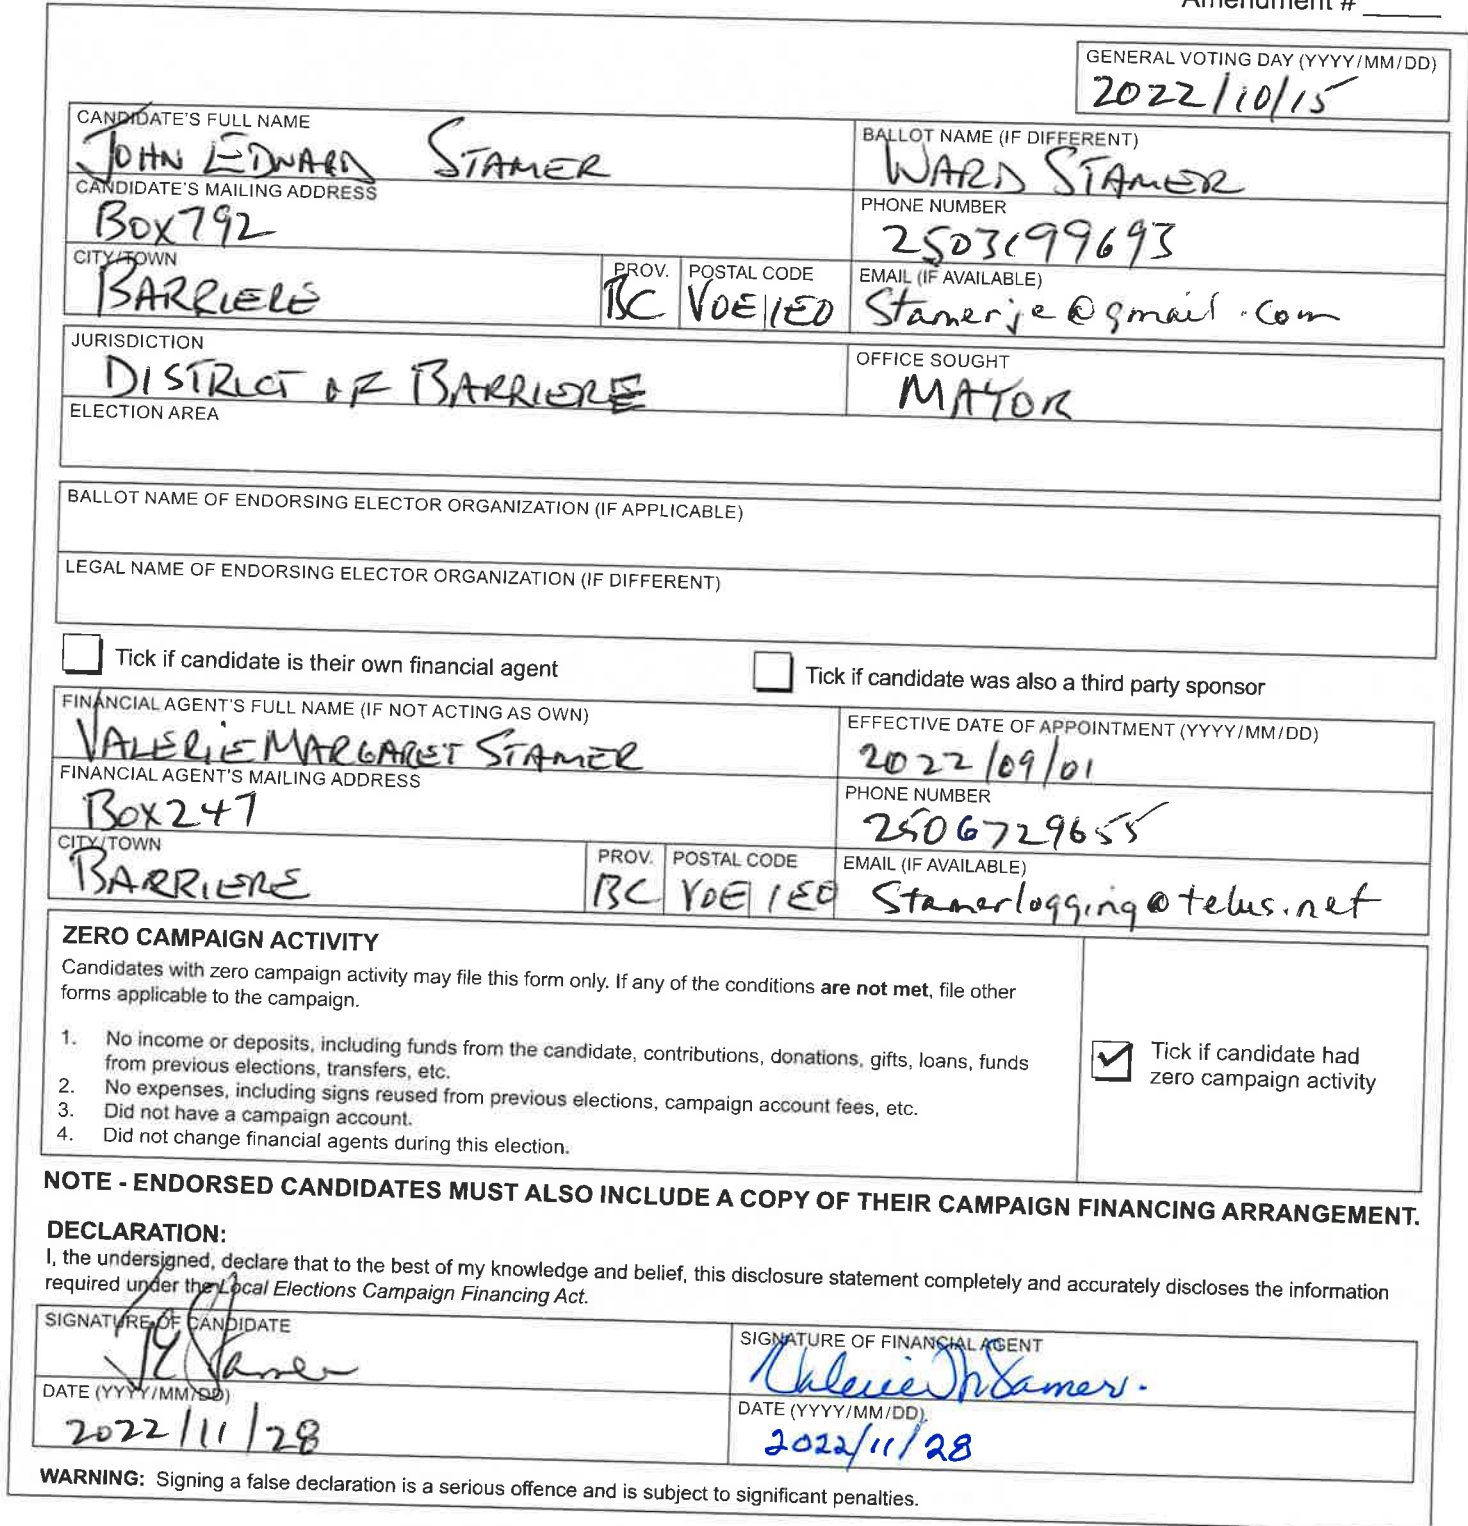 Amendment #
GENERAL VOTING DAY (YYYY/MM/DD)
2022/10/15
CANDIDATE'S FULL NAME
JOHN EDWARD STAMER
BALLOT NAME (IF DIFFERENT)
WARD STAMER
CANDIDATE'S MAILING ADDRESS
BOX 792
PHONE NUMBER
CITY/TOWN
BARRIERE
PROV.
BC
POSTAL CODE
V0E 1E0
EMAIL (IF AVAILABLE)
Stamerje@gmail.com
JURISDICTION
DISTRICT OF BARRIERE
OFFICE SOUGHT
MAYOR
ELECTION AREA
BALLOT NAME OF ENDORSING ELECTOR ORGANIZATION (IF APPLICABLE)
LEGAL NAME OF ENDORSING ELECTOR ORGANIZATION (IF DIFFERENT)
Tick if candidate is their own financial agent
Tick if candidate was also a third party sponsor
FINANCIAL AGENT'S FULL NAME (IF NOT ACTING AS OWN)
VALERIE MARGARET STAMER
EFFECTIVE DATE OF APPOINTMENT (YYYY/MM/DD)
2022/09/01
FINANCIAL AGENT'S MAILING ADDRESS
BOX 247
PHONE NUMBER
2506729655
CITY/TOWN
BARRIERE
PROV.
BC
POSTAL CODE
V0E 1E0
EMAIL (IF AVAILABLE)
Stamerlogging@telus.net
ZERO CAMPAIGN ACTIVITY
Candidates with zero campaign activity may file this form only. If any of the conditions are not met, file other
forms applicable to the campaign.
1. No income or deposits, including funds from the candidate, contributions, donations, gifts, loans, funds
from previous elections, transfers, etc.
2. No expenses, including signs reused from previous elections, campaign account fees, etc.
3. Did not have a campaign account.
4. Did not change financial agents during this election.
Tick if candidate had
zero campaign activity
NOTE - ENDORSED CANDIDATES MUST ALSO INCLUDE A COPY OF THEIR CAMPAIGN FINANCING ARRANGEMENT.
DECLARATION:
I, the undersigned, declare that to the best of my knowledge and belief, this disclosure statement completely and accurately discloses the information
required under the Local Elections Campaign Financing Act.
SIGNATURE OF CANDIDATE
JE Stamer
SIGNATURE OF FINANCIAL AGENT
Valerie M Stamer.
DATE (YYYY/MM/DD)
2022/11/28
DATE (YYYY/MM/DD)
2022/11/28
WARNING: Signing a false declaration is a serious offence and is subject to significant penalties.